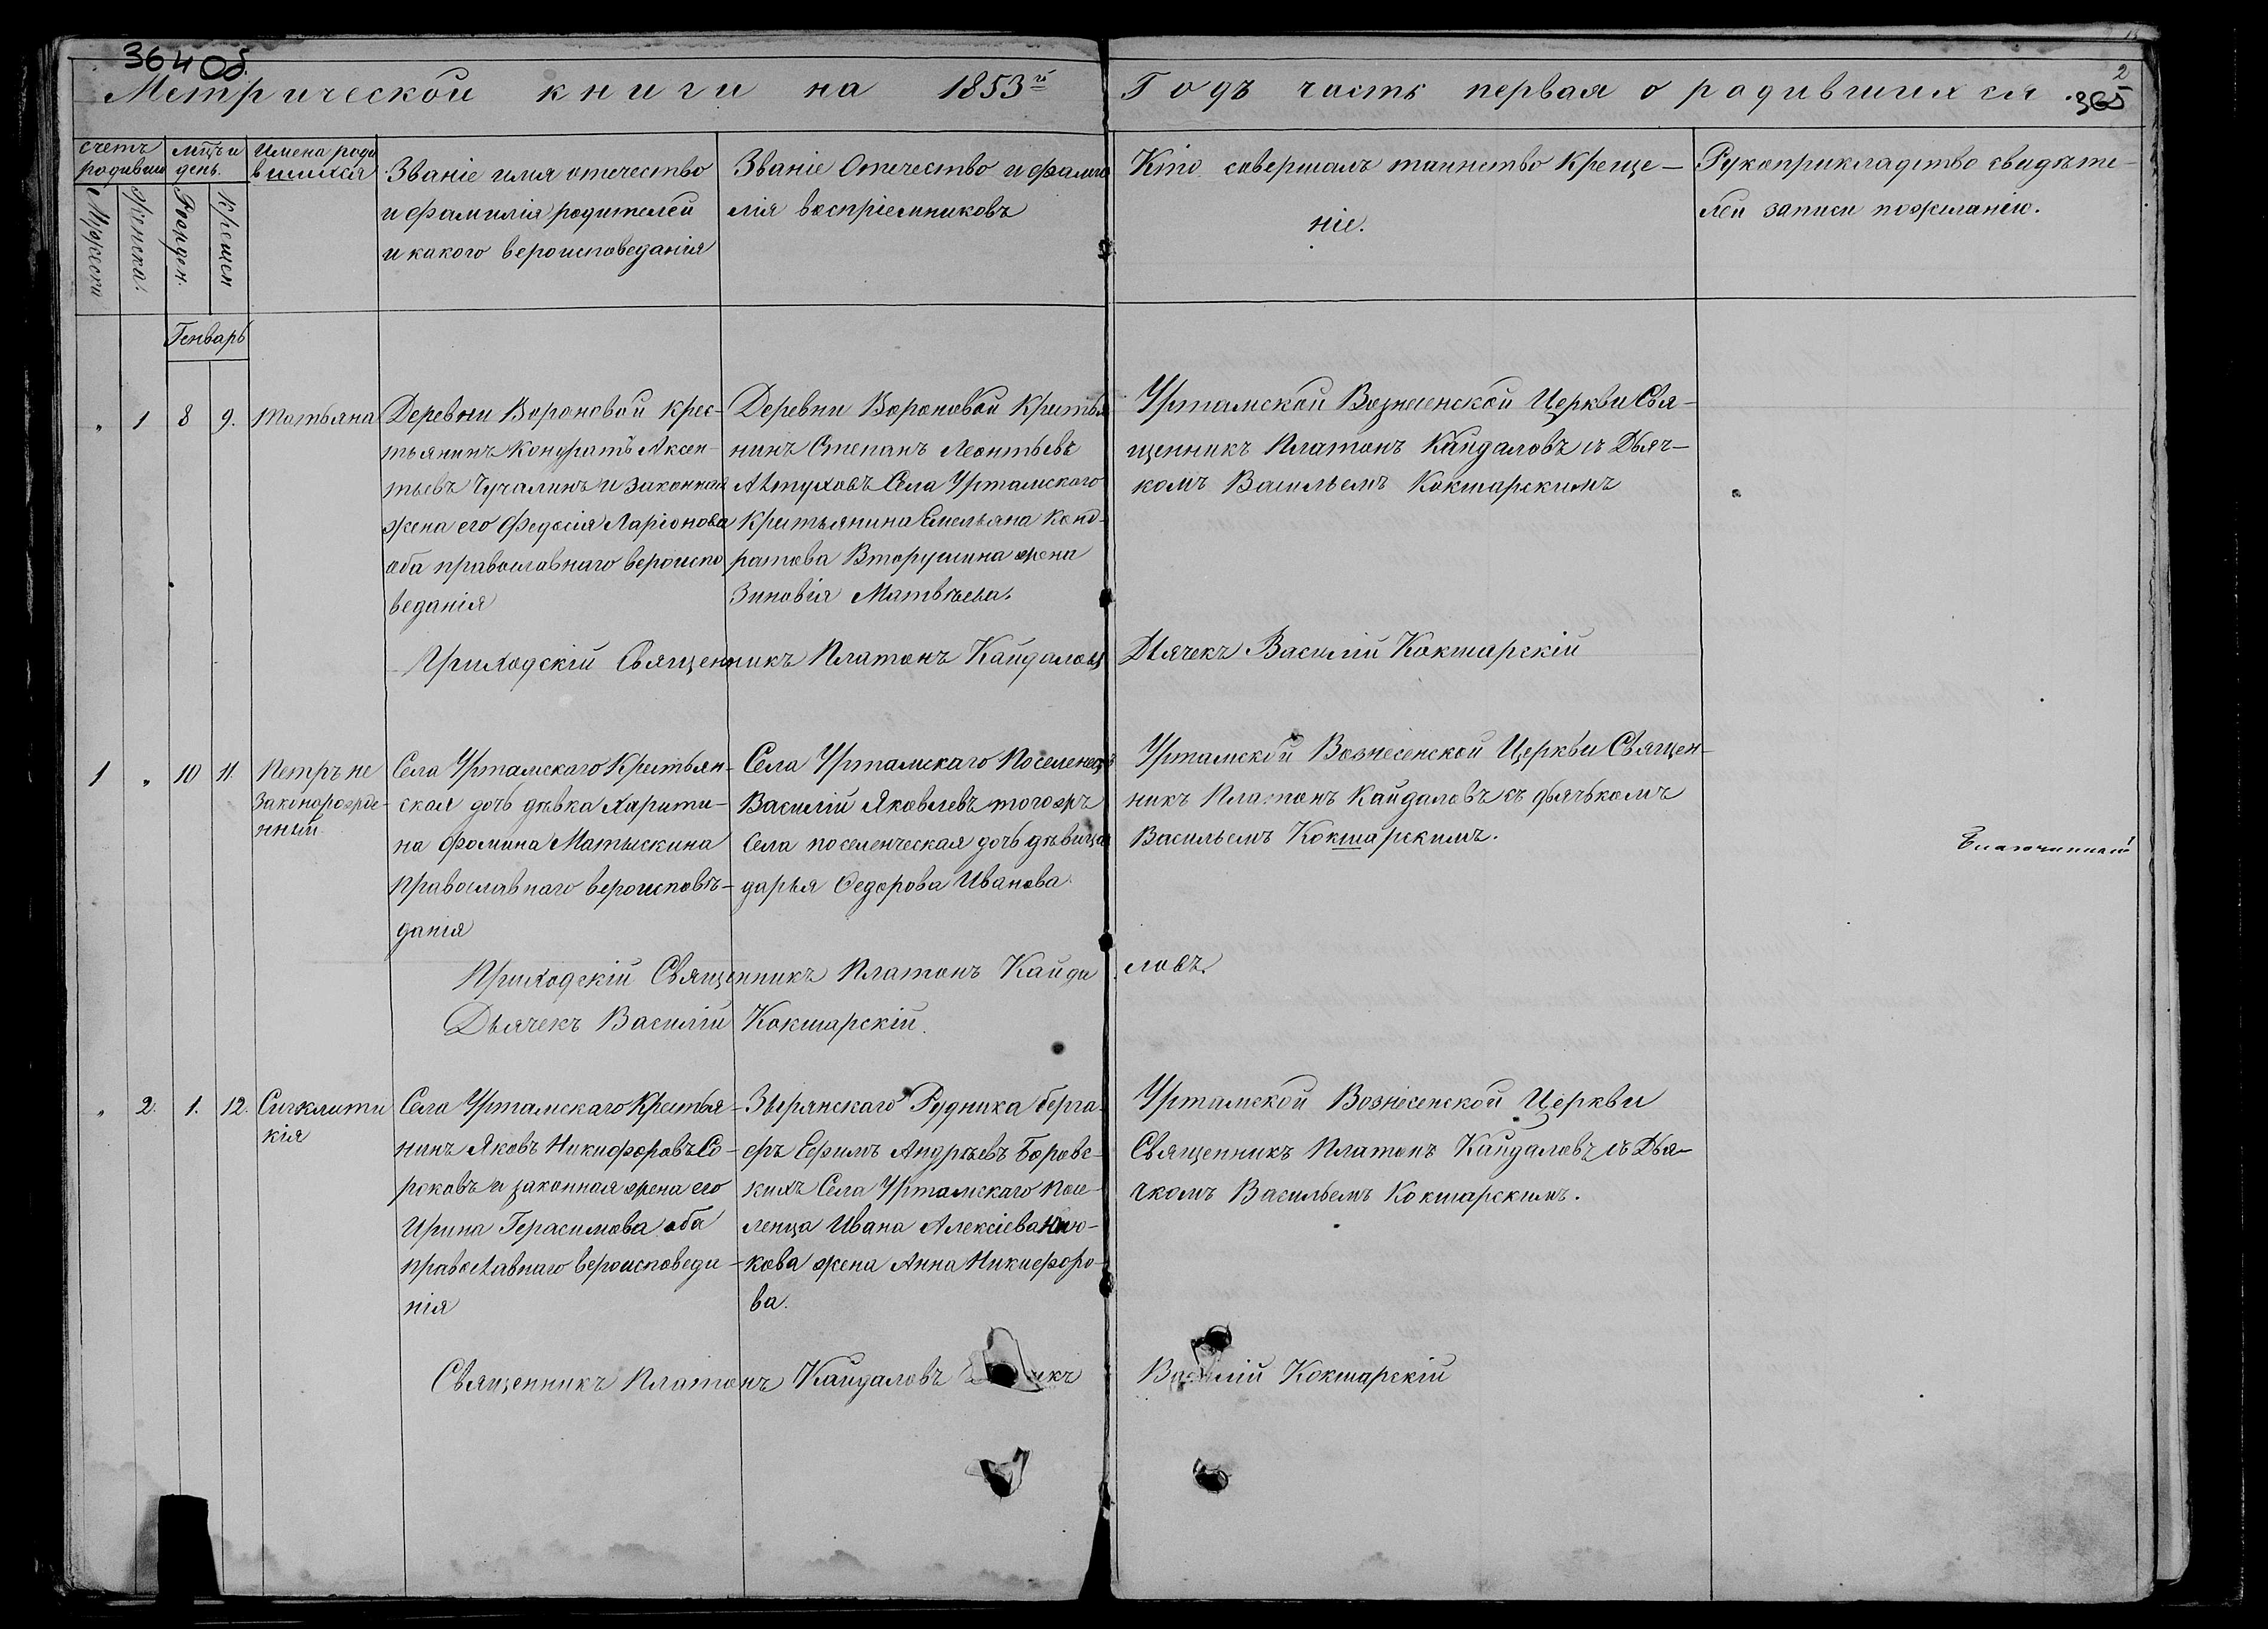 364 Об.
Метрической книги на 1853й Годъ часть первая о родившихся
2
365
счетъ родивши
Мужеска
Женска.
мцъ и день.
Рожден.
Крещен
Имена роди
вшихся
Званіе имя отечество
и фамилія родителей
и какого вероисповеданія
Званіе Отечество и фами
лія воспріемниковъ
Кто совершалъ таинство Креще-
ніе.
Рукоприкладство свидѣте-
лей записи пожеланію.
Генварь
" 1 8 9. Татьяна
Деревни Вороновой крес-
тьянинъ Кондратъ Аксен-
тьевъ Чучалинъ и законная
жена его Федосія Ларіонова
оба православнаго вероиспо
веданія
Деревни Вороновой Крестья
нинъ Степанъ Леонтьевъ
Алтуховъ Села Уртамского
Крестьянина Емельяна Конд-
ратова Вторушина жена
Зиновія Матвѣева.
Уртамской Вознесенской Церкви Свя-
щенникъ Платонъ Кайдаловъ съ Дьяч-
комъ Васильемъ Кокшарскимъ
Приходскій Священникъ Платонъ Кайдаловъ Дьячекъ Василій Кокшарскій
1 " 10 11. Петръ не
законорожде-
нный
Села Уртамскаго Крестьян-
ская дочь дѣвка Харити-
на Фомина Матыскина
православнаго вероисповѣ-
данія
Села Уртамскаго Поселенецъ
Василій Яковлевъ тогожъ
Села поселенческая дочь дѣвица
дарья Федорова Иванова.
Уртамской Вознесенской Церкви Священ-
никъ Платонъ Кайдаловъ съ дьячькомъ
Васильемъ Кокшарскимъ.
Благочинный
Приходскій Священникъ Платонъ Кайда ловъ.
Дьячекъ Василій Кокшарскій.
" 2. 1. 12. Сигклити
кія
Села Уртамскаго Крестья-
нинъ Яковъ Никифоровъ Со-
роковъ и законная жена его
Ирина Герасимова оба
православнаго вероисповеда-
нія
Зырянскаго Рудника берга-
еръ Ефимъ Андрѣевъ Боровс-
кихъ Села Уртамскаго посе-
ленца Ивана Алексіева
кова жена Анна Никифоро-
ва.
Уртамской Вознесенской Церкви
Священникъ Платонъ Кайдаловъ съ Дья-
чкомъ Васильемъ Кокшарскимъ.
Священникъ Платонъ Кайдаловъ Василій Кокшарскій